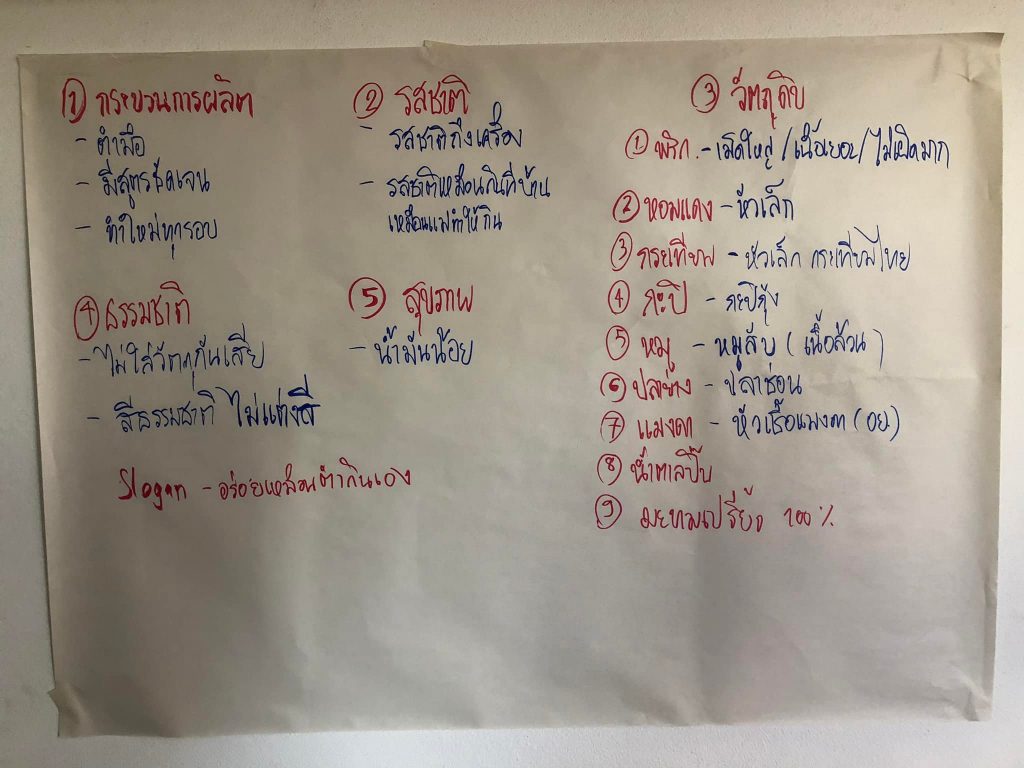 ① กระบวนการผลิต
- ตำมือ
- มีสูตรชัดเจน
- ทำใหม่ทุกรอบ
② รสชาติ
- รสชาติถึงเครื่อง
- รสชาติเหมือนกินที่บ้าน
เหมือนแม่ทำให้กิน
③ วัตถุดิบ
① พริก - เม็ดใหญ่/เนื้อเยอะ/ไม่เผ็ดมาก
② หอมแดง - หัวเล็ก
③ กระเทียม - หัวเล็ก กระเทียมไทย
④ กะปิ - กะปิกุ้ง
⑤ หมู - หมูสับ (เนื้อล้วน)
⑥ ปลาย่าง - ปลาช่อน
⑦ แมงดา - หัวเชื้อแมงดา (อย)
⑧ น้ำตาลปี๊บ
⑨ มะขามเปรี้ยว 100%
④ ธรรมชาติ
- ไม่ใส่วัตถุกันเสีย
- สีธรรมชาติ ไม่แต่งสี
⑤ สุขภาพ
- น้ำมันน้อย
Slogan - อร่อยเหมือนตำกินเอง